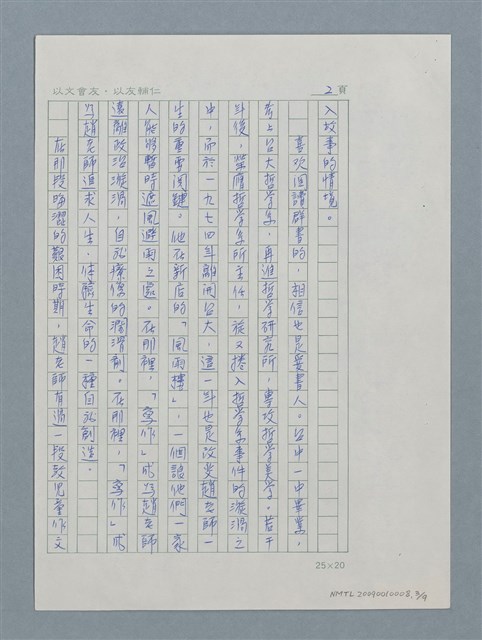 以文會友・以友輔仁
2頁
入故事的情境。
喜欢回讀群書的,相信也是愛書人。台中一中畢業,
考上台大哲學系,再進哲學研究所,專攻哲學美學。若干
年後,榮膺哲學系所主任,旋又捲入哲學系事件的漩渦之
中,而於一九七四年離開台大,這一年也是改变趙老師一
生的重要関鍵。他在新店的「風雨樓」,一個讓他們一家
人能夠暫時遮風避雨之處。在那裡,「寫作」成為趙老師
遠離政治漩渦,自我療傷的潤滑劑。在那裡,「寫作」成
為趙老師追求人生,体驗生命的一種自我創造。
在那段晦澀的艱困時期,趙老師有過一段教兒童作文
25×20
NMTL20090010008.3/9